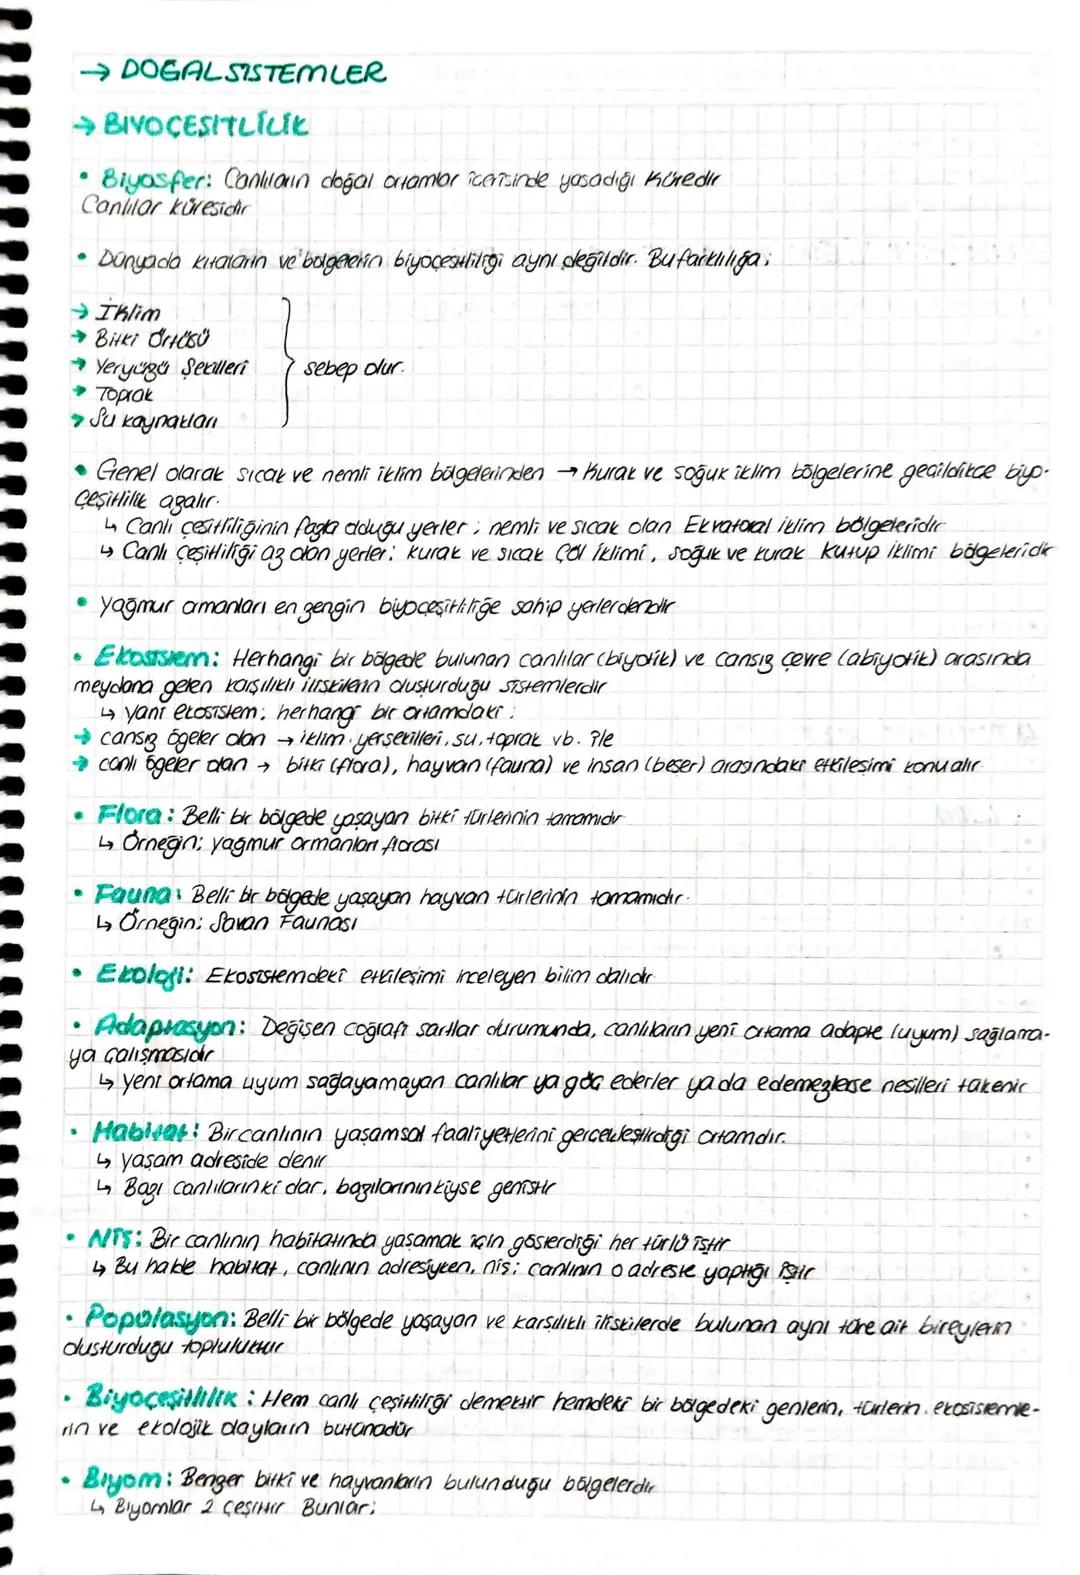 → DOĞAL SİSTEMLER
→ BİYOÇEŞİTLİLİK
• Biyosfer: Canlıların doğal ortamlar içerisinde yaşadığı küredir
Canlılar küresidir
• Dünyada kıtaların ve bölgelerin biyoçeşitliliği aynı değildir. Bu farklılığa;
→ İklim
→ Bitki Örtüsü
→ Yeryüzü Şekilleri
sebep olur.
→ Toprak
→ Su kaynakları
• Genel olarak sıcak ve nemli iklim bölgelerinden → Kurak ve soğuk iklim bölgelerine geçildikçe biyo-
çeşitlilik azalır.
↳ Canlı çeşitliliğinin fazla olduğu yerler; nemli ve sıcak olan Ekvatoral iklim bölgeleridir
↳ Canlı Çeşitliliği az olan yerler: Kurak ve sıcak Çöl İklimi, soğuk ve kurak Kutup İklimi bölgeleridir
• Yağmur ormanları en zengin biyoçeşitliliğe sahip yerlerdendir
• Ekosistem: Herhangi bir bölgede bulunan canlılar (biyotik) ve cansız çevre (abiyotik) arasında
meydana gelen karşılıklı ilişkilerin oluşturduğu sistemlerdir
↳ Yani ekosistem; herhangi bir ortamdaki;
→ cansız ögeler olan → iklim, yerşekilleri, su, toprak vb. ile
→ canlı ögeler olan → bitki (flora), hayvan (fauna) ve insan (beşer) arasındaki etkileşimi konu alır.
• Flora: Belli bir bölgede yaşayan bitki türlerinin tamamıdır
↳ Örneğin; Yağmur ormanları florası
• Fauna: Belli bir bölgede yaşayan hayvan türlerinin tamamıdır.
↳ Örneğin; Savan Faunası
• Ekoloji: Ekosistemdeki etkileşimi inceleyen bilim dalıdır
• Adaptasyon: Değişen coğrafi şartlar durumunda, canlıların yeni ortama adapte (uyum) sağlama-
ya çalışmasıdır
↳ Yeni ortama uyum sağlayamayan canlılar ya göç ederler ya da edemezlerse nesilleri tükenir
• Habitat: Bir canlının yaşamsal faaliyetlerini gerçekleştirdiği ortamdır.
↳ Yaşam adreside denir
↳ Bazı canlılarınki dar, bazılarınınkiyse geniştir
• Niş: Bir canlının habitatında yaşamak için gösterdiği her türlü iştir
↳ Bu halde habitat, canlının adresiyken, niş; canlının o adreste yaptığı iştir
• Popülasyon: Belli bir bölgede yaşayan ve karşılıklı ilişkilerde bulunan aynı türe ait bireylerin
oluşturduğu topluluktur
• Biyoçeşitlilik: Hem canlı çeşitliliği demektir hemdeki bir bölgedeki genlerin, türlerin, ekosistemle-
rin ve ekolojik olayların bütünüdür
• Biyom: Benzer bitki ve hayvanların bulunduğu bölgelerdir
↳ Biyomlar 2 çeşittir Bunlar;